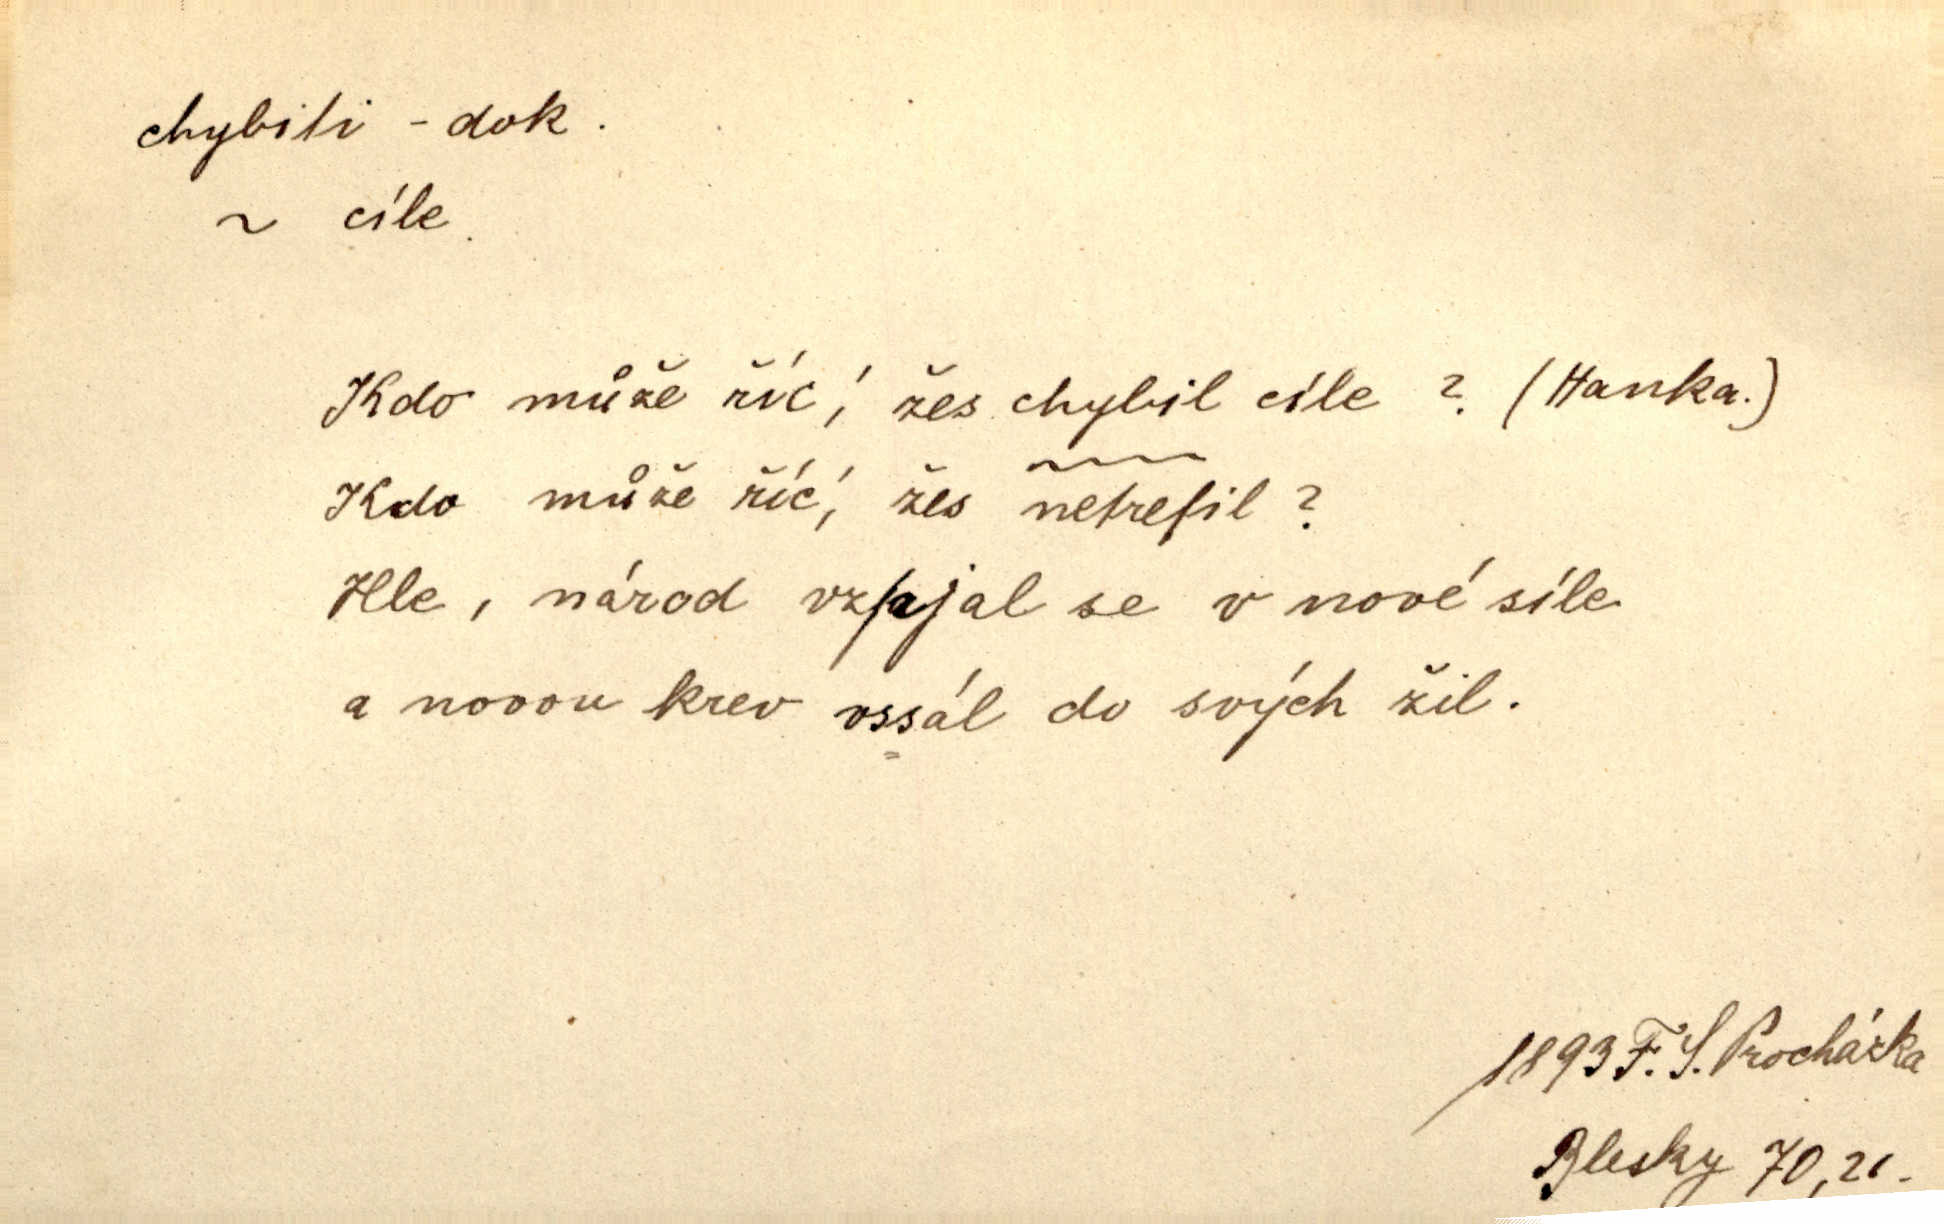 chybiti - dok.
~ cíle.
Kdo může říc', žes chybil cíle ? (Hanka.)
Kdo může říc', žes netrefil ?
Hle, národ vzpjal se v nové síle
a novou krev vssál do svých žil.
1893 F. S. Procházka
Blesky 70, 21.